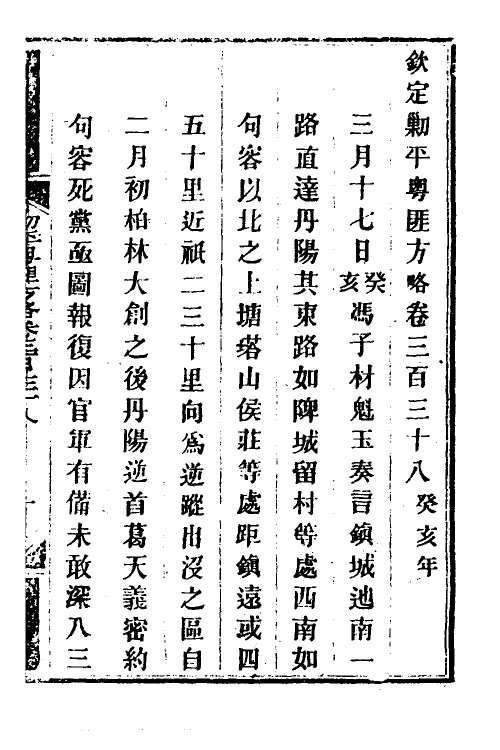 欽定勦平粵匪方略卷三百三十八癸亥年
三月十七日癸亥馮子材魁玉奏言鎮城迤南一
路直達丹陽其東路如陴城留村等處西南如
句容以北之上塘塔山侯莊等處距鎮遠或四
五十里近祇二三十里向爲逆蹤出沒之區自
二月初柏林大創之後丹陽逆首葛天義密約
句容死黨亟圖報復因官軍有備未敢深入三